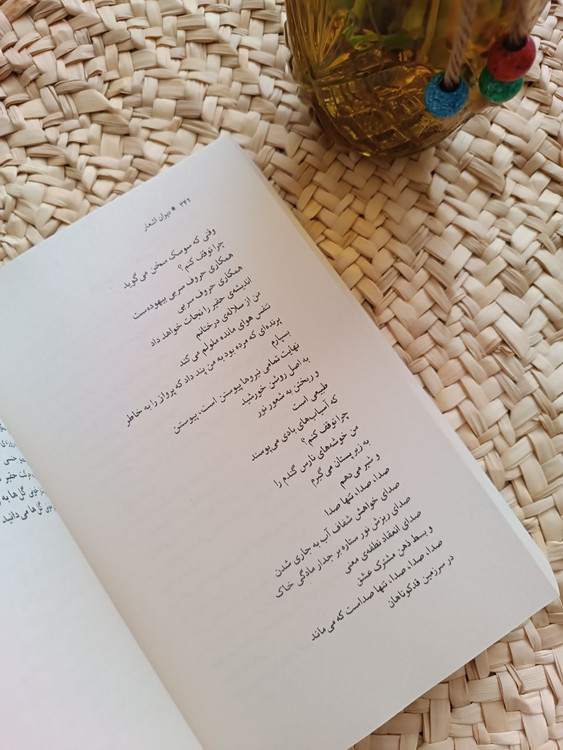 دیوان اشعار
وقتی که سوسک سخن می‌گوید
چرا توقف کنم؟
همکاری حروف سربی بیهوده‌ست
همکاری حروف سربی
اندیشه‌ی حقیر را نجات خواهد داد
من از سلاله‌ی درختانم
تنفس هوای مانده ملولم می‌کند
پرنده‌ای که مرده بود به من پند داد که پرواز را به خاطر
بسپارم
نهایت تمامی نیروها پیوستن است، پیوستن
به اصل روشن خورشید
و ریختن به شعور نور
طبیعی است
که آسیاب‌های بادی می‌پوسند
چرا توقف کنم؟
من خوشه‌های نارس گندم را
به زیر پستان می‌گیرم
و شیر می‌دهم
صدا، صدا، تنها صدا
صدای خواهش شفاف آب به جاری شدن
صدای ریزش نور ستاره بر جدار مادگی خاک
صدای انعقاد نطفه‌ی معنی
و بسط ذهن مشترک عشق
صدا، صدا، صدا، تنها صداست که می‌ماند
در سرزمین قدکوتاهان